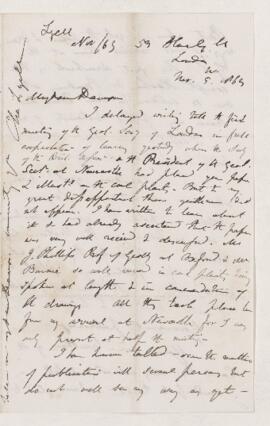 Lyell
Nov/63 53 Harley St
London
Nov. 5, 1863
My dear Dawson
I delayed writing till the first
meeting of the Geol. Socy of London in full
expectation of learning yesterday when the Secy
of the Brit. Assoc. or the President of the Geol.
Sect. at Newcastle had placed your paper
& illustrns on the coal plants. But to my
great disappointment those gentlemen did
not appear. I have written to learn about
it & had already ascertained that the paper
was very well received & discussed. Mr
J Phillips Prof of Geology at Oxford & Mr
so well versed in coal plants having
spoken at length & in commendation of
the drawings All this took place before
my arrival at Newcastle for I was
only present at half the meeting.
I have talked over the matter
of publication with several persons, but
do not well see my way as yet